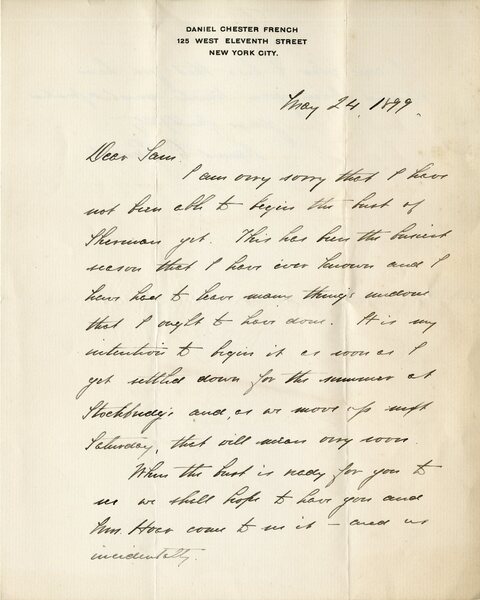 DANIEL CHESTER FRENCH
125 WEST ELEVENTH STREET
NEW YORK CITY.
May 24, 1899.
Dear Sam.
I am very sorry that I have
not been able to begin the bust of
Sherman yet. This has been the busiest
season that I have ever known and I
have had to leave many things undone
that I ought to have done. It is my
intention to begin it as soon as I
get settled down for the summer at
Stockbridge and, as we move up next
Saturday, that will mean very soon.
When the bust is ready for you to
see we shall hope to have you and
Mrs. Hoar come to see it – and us
incidentally.